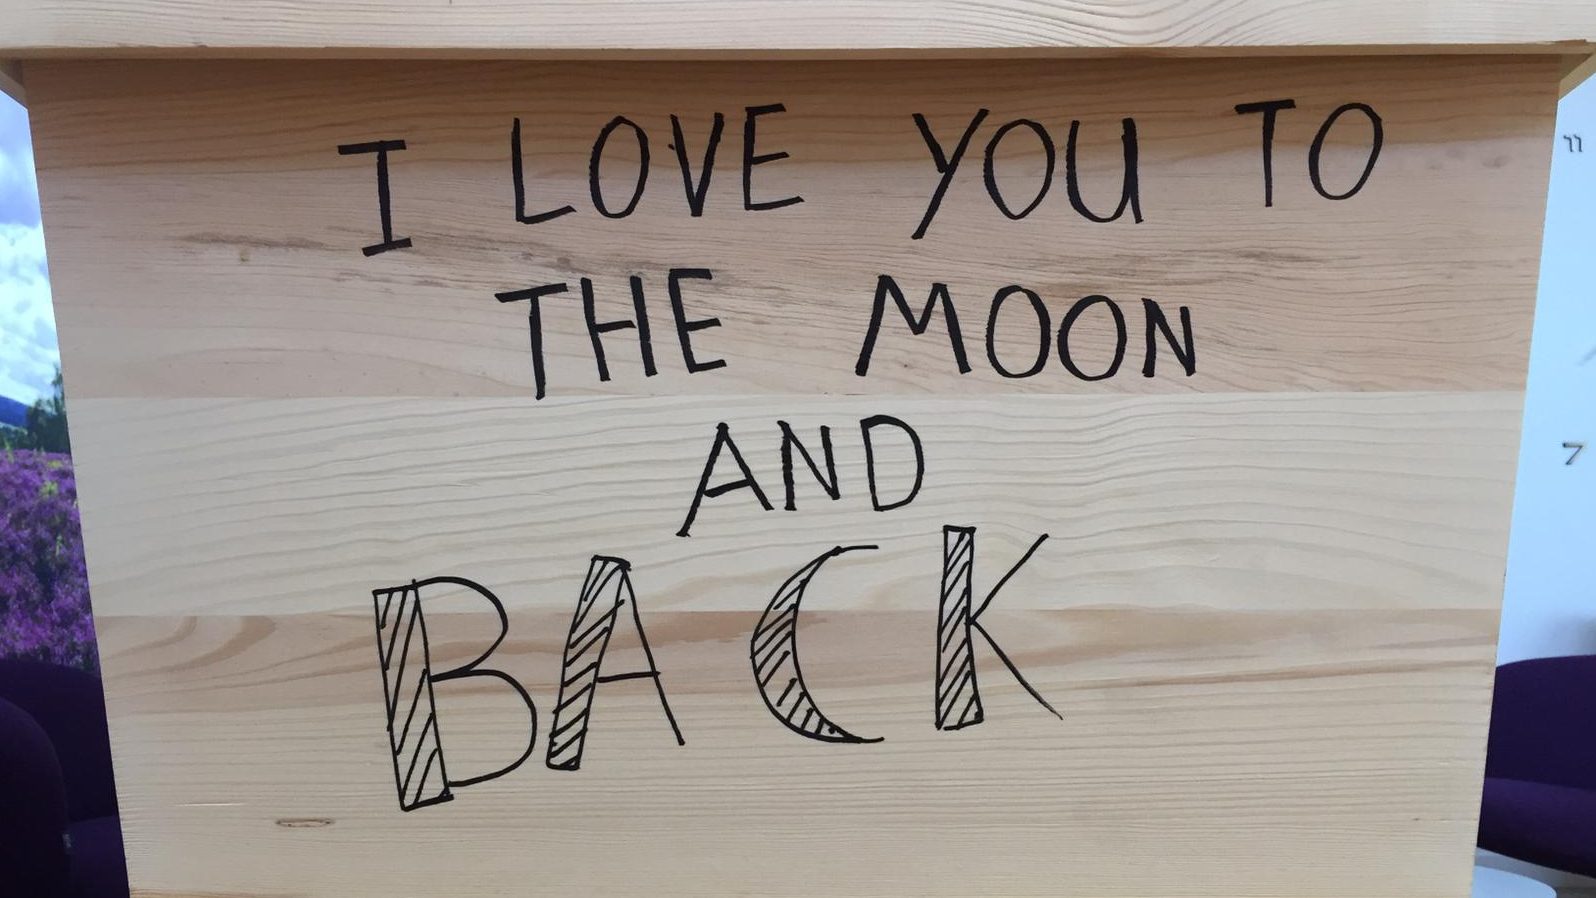 I LOVE YOU TO
THE MOON
AND
BACK
11
7